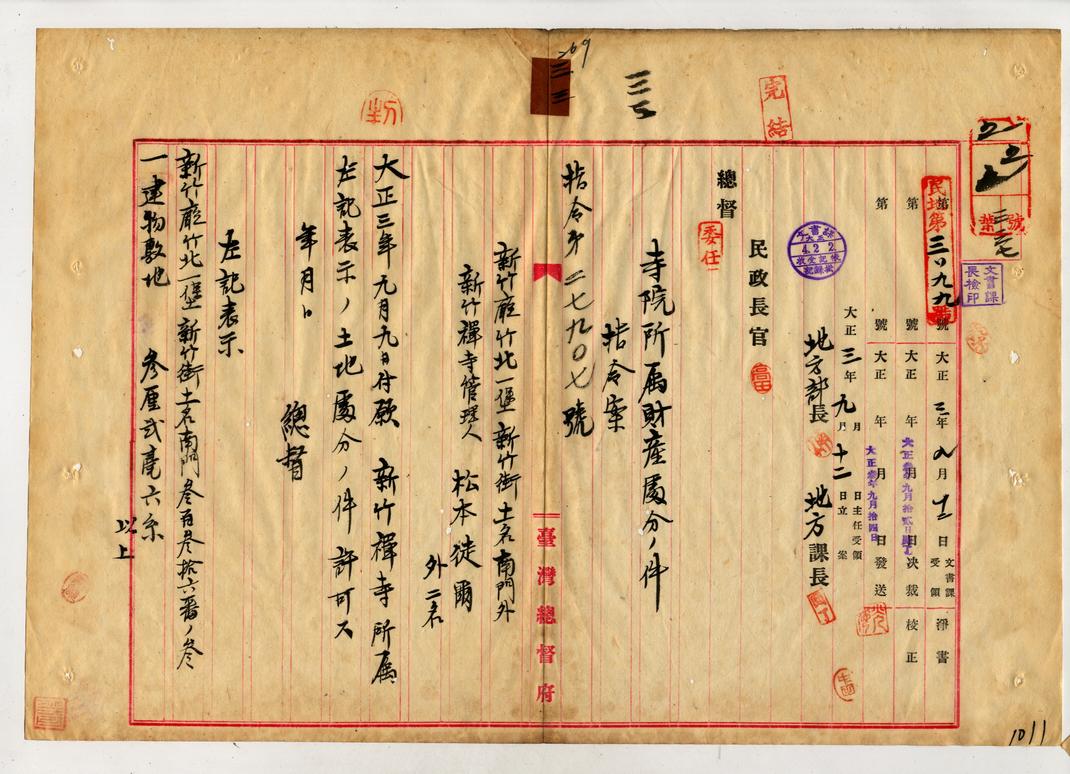 完結
民地第三〇九九號
第 號 大正三年九月十二日 文書課受領 淨書
第 號 大正 年 月 日決裁 校正
大正參年九月拾貳日
第 號 大正 年 月 日發送
大正參年九月拾四日
文書課長檢印
大正三年九月十二日立案
月 日主任受領
地方部長 地方課長
民政長官
總督
委任
寺院所屬財產處分ノ件
指令案
指令第二七九〇七號
新竹廳竹北一堡新竹街土名南門外
新竹禪寺管理人
松本徒爾
外二名
大正三年九月九日付願新竹禪寺所屬
左記表示ノ土地處分ノ件許可ス
年月日
總督
左記表示
新竹廳竹北一堡新竹街土名南門參百參拾六番ノ參
一建物敷地 參厘貳毫六糸
以上
臺灣總督府
1011